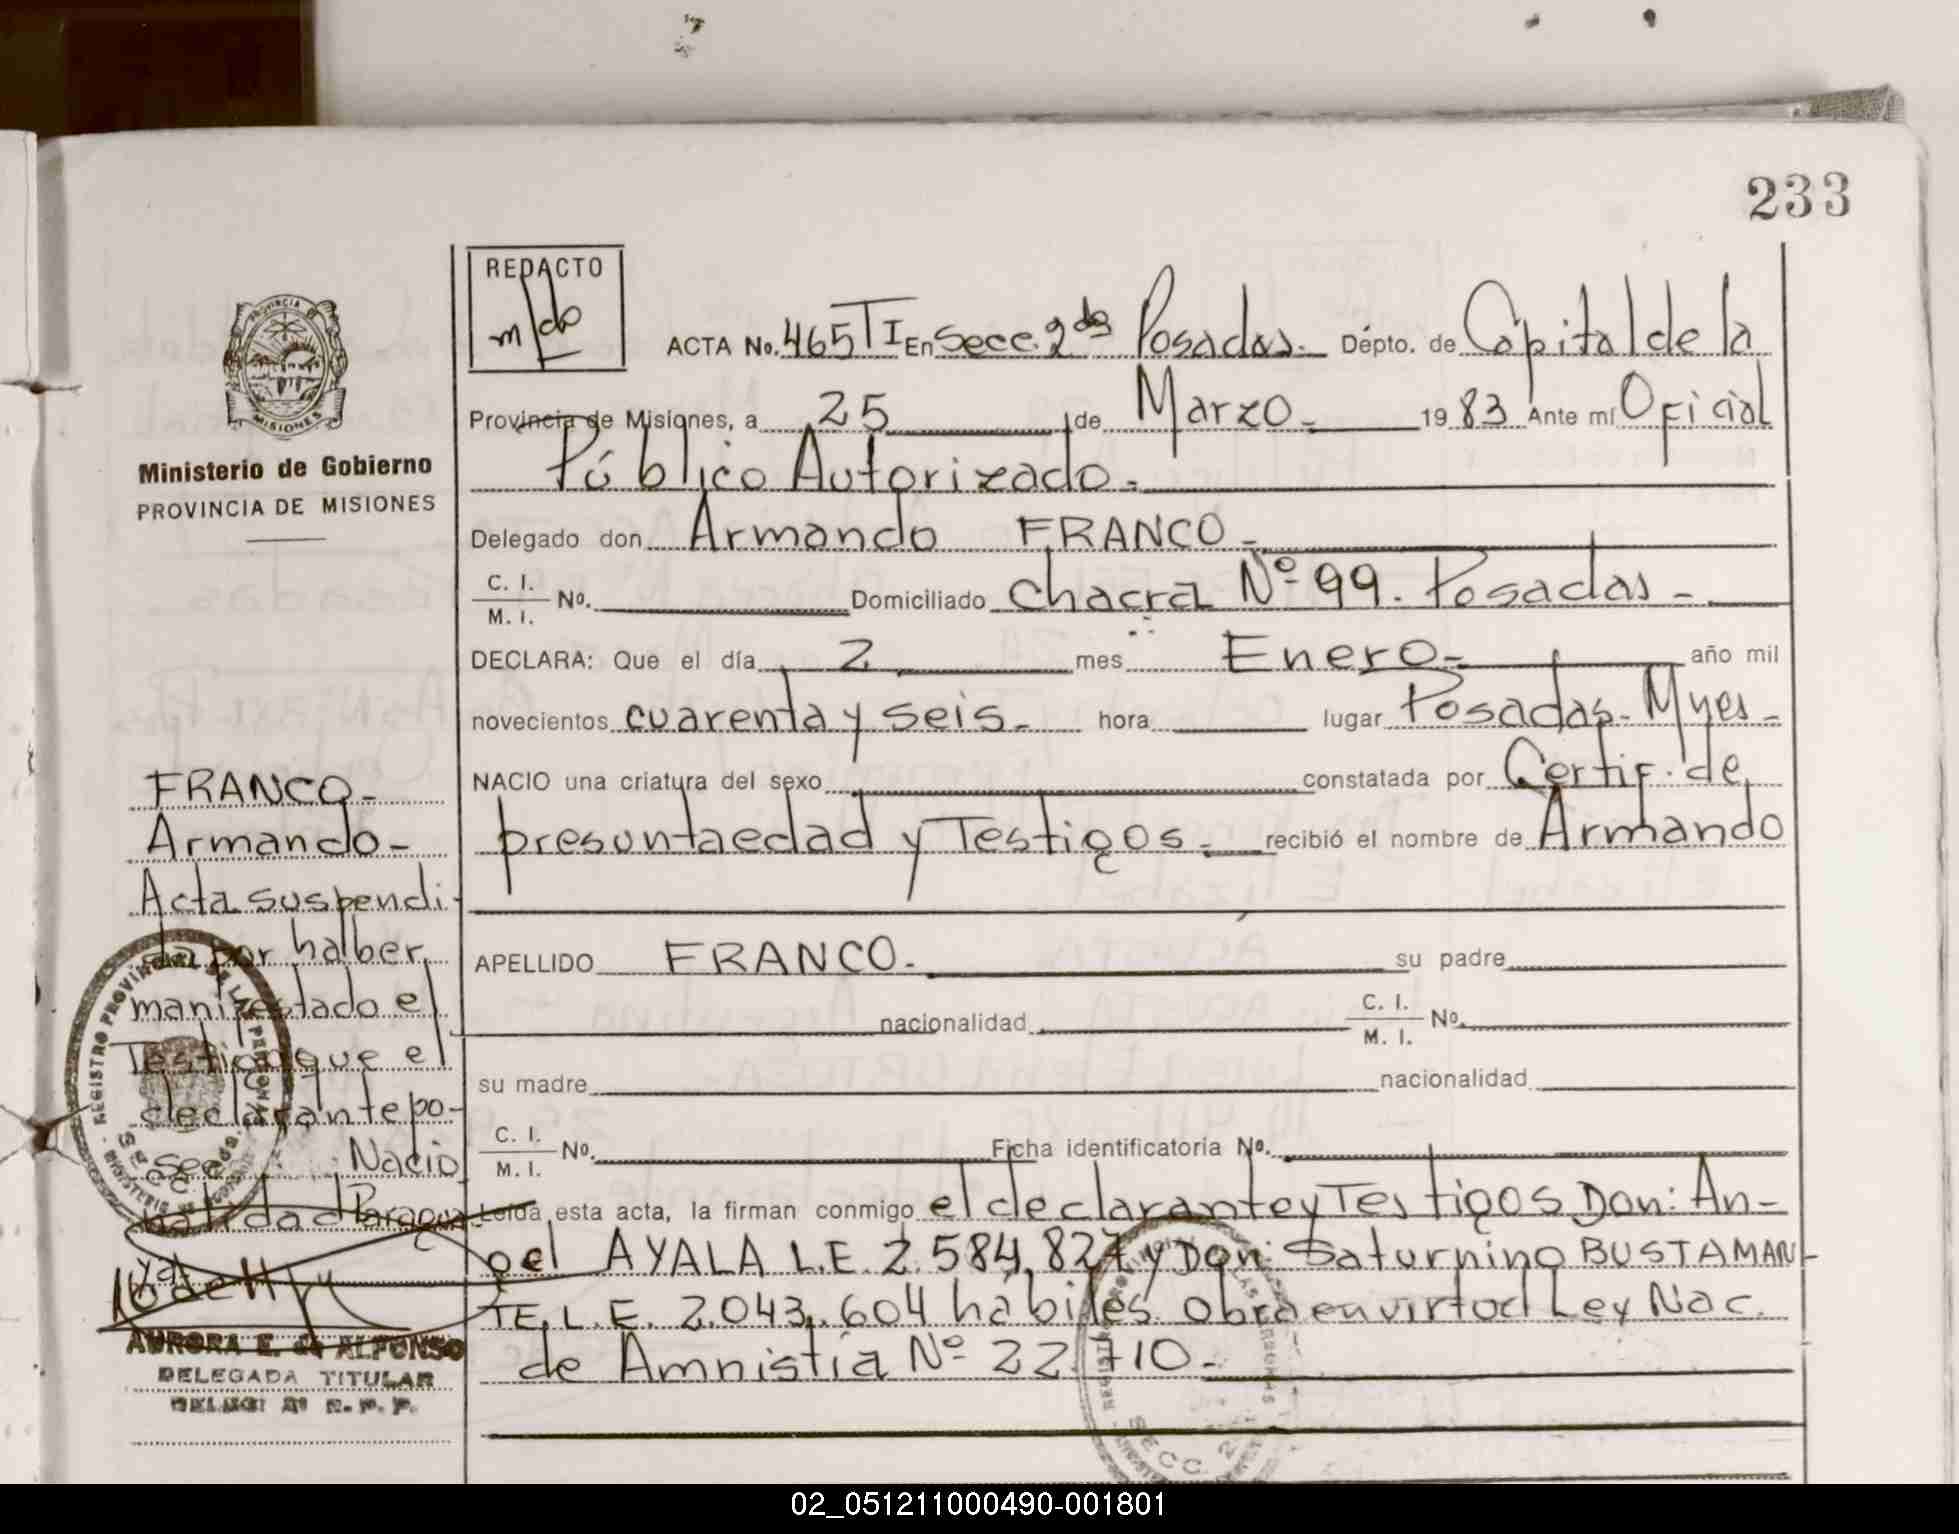 233
REDACTO
PROVINCIA D
MISIONES
ACTA No. 465 T I En Secc. 2da Posadas. Dépto. de Capital de la
Provincia de Misiones, a 25 de Marzo 1983 Ante mí Oficial
Público Autorizado.
Ministerio de Gobierno
PROVINCIA DE MISIONES
Delegado don Armando FRANCO
C. I.
M. I. No. Domiciliado chacra Nº 99. Posadas
DECLARA: Que el día 2 mes Enero año mil
novecientos cuarenta y seis hora lugar Posadas. Mnes
NACIO una criatura del sexo constatada por Certif. de
presunta edad y Testigos recibió el nombre de Armando
APELLIDO FRANCO. su padre
nacionalidad C. I.
M. I. No.
su madre nacionalidad
C. I.
M. I. No. Ficha identificatoria No.
Leída esta acta, la firman conmigo el declarante y Testigos Don: An-
gel AYALA L.E. 2.584.827 y Don: Saturnino BUSTAMAN-
TE. L.E. 2.043.604 hábiles. Obra en virtud Ley Nac.
de Amnistía Nº 22.710
FRANCO
Armando
Acta suspendi-
da por halber
manifestado el
Testigo que el
declarante po-
see Nacio
nalidad Paragua-
ya
AURORA E. de ALFONSO
DELEGADA TITULAR
REGISTRO PROVINCIAL DE LAS PERSONAS
SECC. 2
02_051211000490-001801